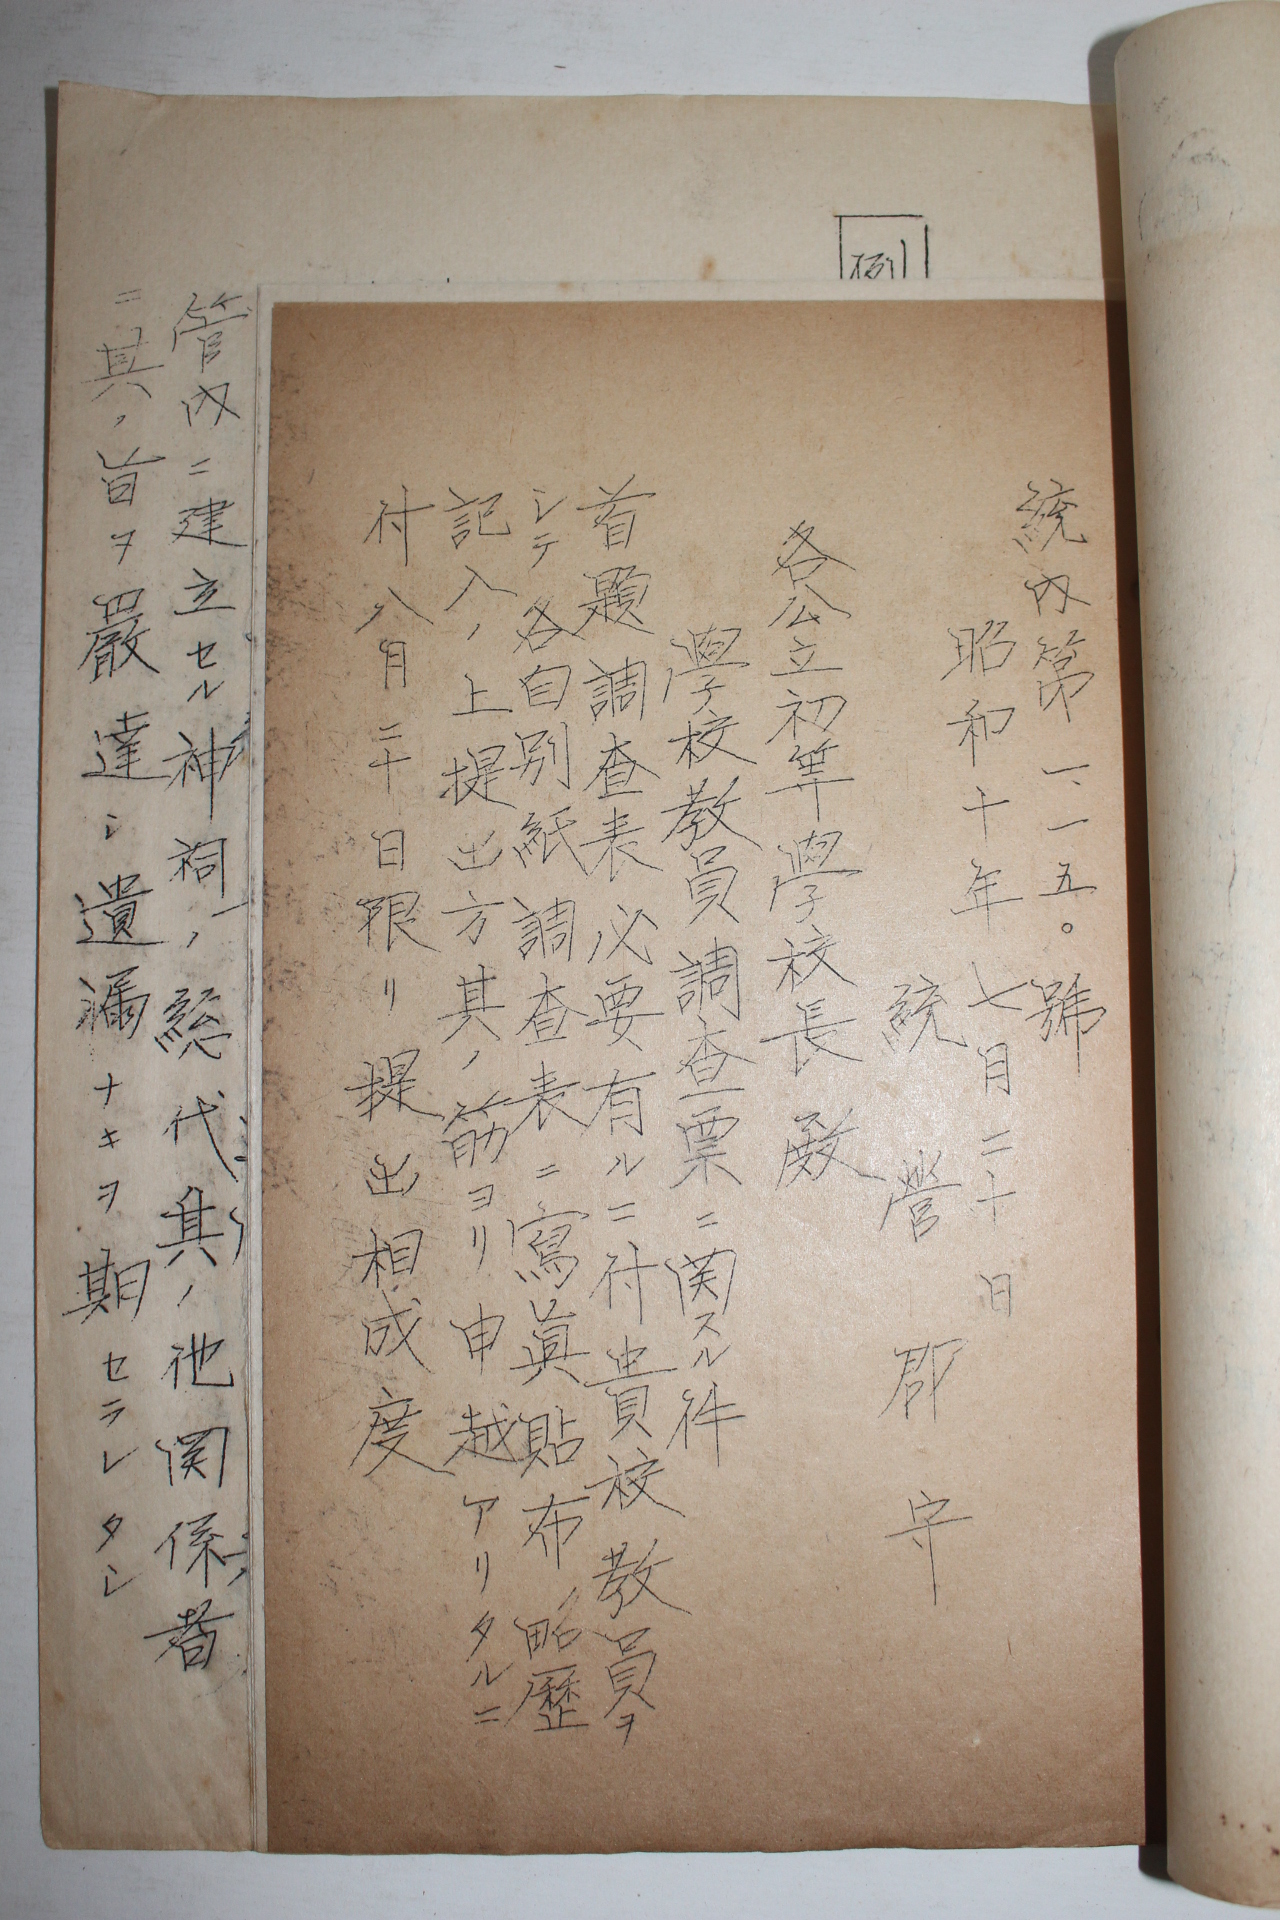 例
統内第一、一五。號
昭和十年七月二十日
統營郡守
各公立初等學校長殿
學校教員調査票ニ関スル件
首題調査表必要有ルニ付貴校教員ヲ
シテ各自別紙調査表ニ寫眞貼布略歴
記入ノ上提出方其ノ筋ヨリ申越アリタルニ
付八月二十日限リ提出相成度
管内ニ建立セル神祠ノ総代其ノ他関係者
ニ其ノ旨ヲ嚴達シ遺漏ナキヲ期セラレタシ